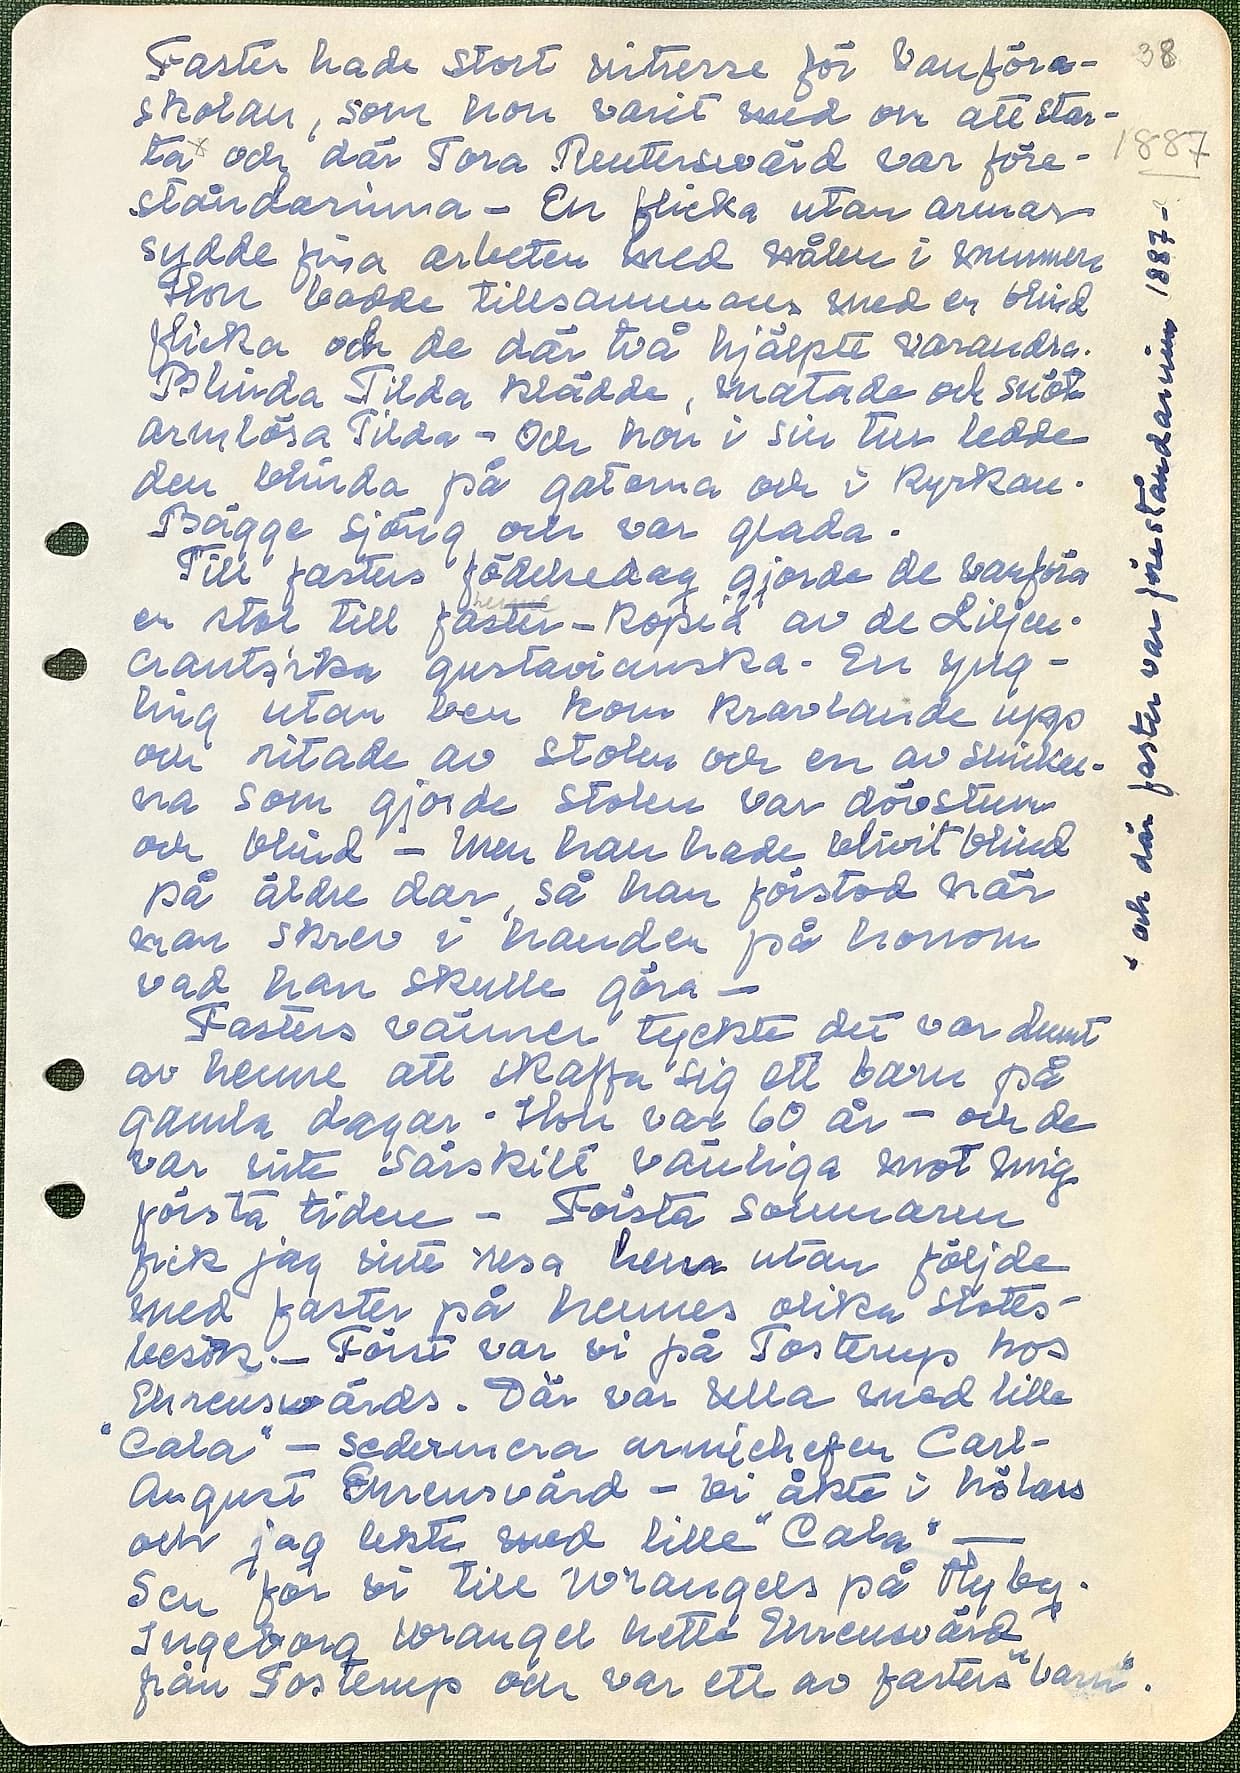 38
Faster hade stort intresse för Vanföra-
skolan, som hon varit med om att star-
ta x och där Tora Reuterswärd var före-
1887
ståndarinna - En flicka utan armar
sydde fina arbeten med nålen i munnen
Hon bodde tillsammans med en blind
flicka och de där två hjälpte varandra.
Blinda Tilda klädde, matade och snöt
armlösa Tilda - Och hon i sin tur ledde
den blinda på gatorna och i kyrkan.
Bägge sjöng och var glada.
Till fasters födelsedag gjorde de vanföra
henne
en stol till faster - kopia av de Liljen-
crantz'ska gustavianska. En yng-
ling utan ben kom kravlande upp
och ritade av stolen och en av snickar-
na som gjorde stolen var dövstum
och blind - men han hade blivit blind
på äldre dar, så han förstod när
man skrev i handen på honom
vad han skulle göra -
Fasters vänner tyckte det var dumt
av henne att skaffa sig ett barn på
gamla dagar. Hon var 60 år - och de
var inte särskilt vänliga mot mig
första tiden - Första sommaren
fick jag inte resa hem utan följde
med faster på hennes olika slotts-
besök. - Först var vi på Tosterup hos
Ehrensvärds. Där var Ulla med lille
"Cala" - sedermera arméchefen Carl-
August Ehrensvärd - Vi åkte i hölass
och jag lekte med lille "Cala" -
Sen för vi till Wrangels på Hyby.
Ingeborg Wrangel hette Ehrensvärd
från Tosterup och var ett av fasters "barn".
x och där faster var föreståndarinna 1887 -